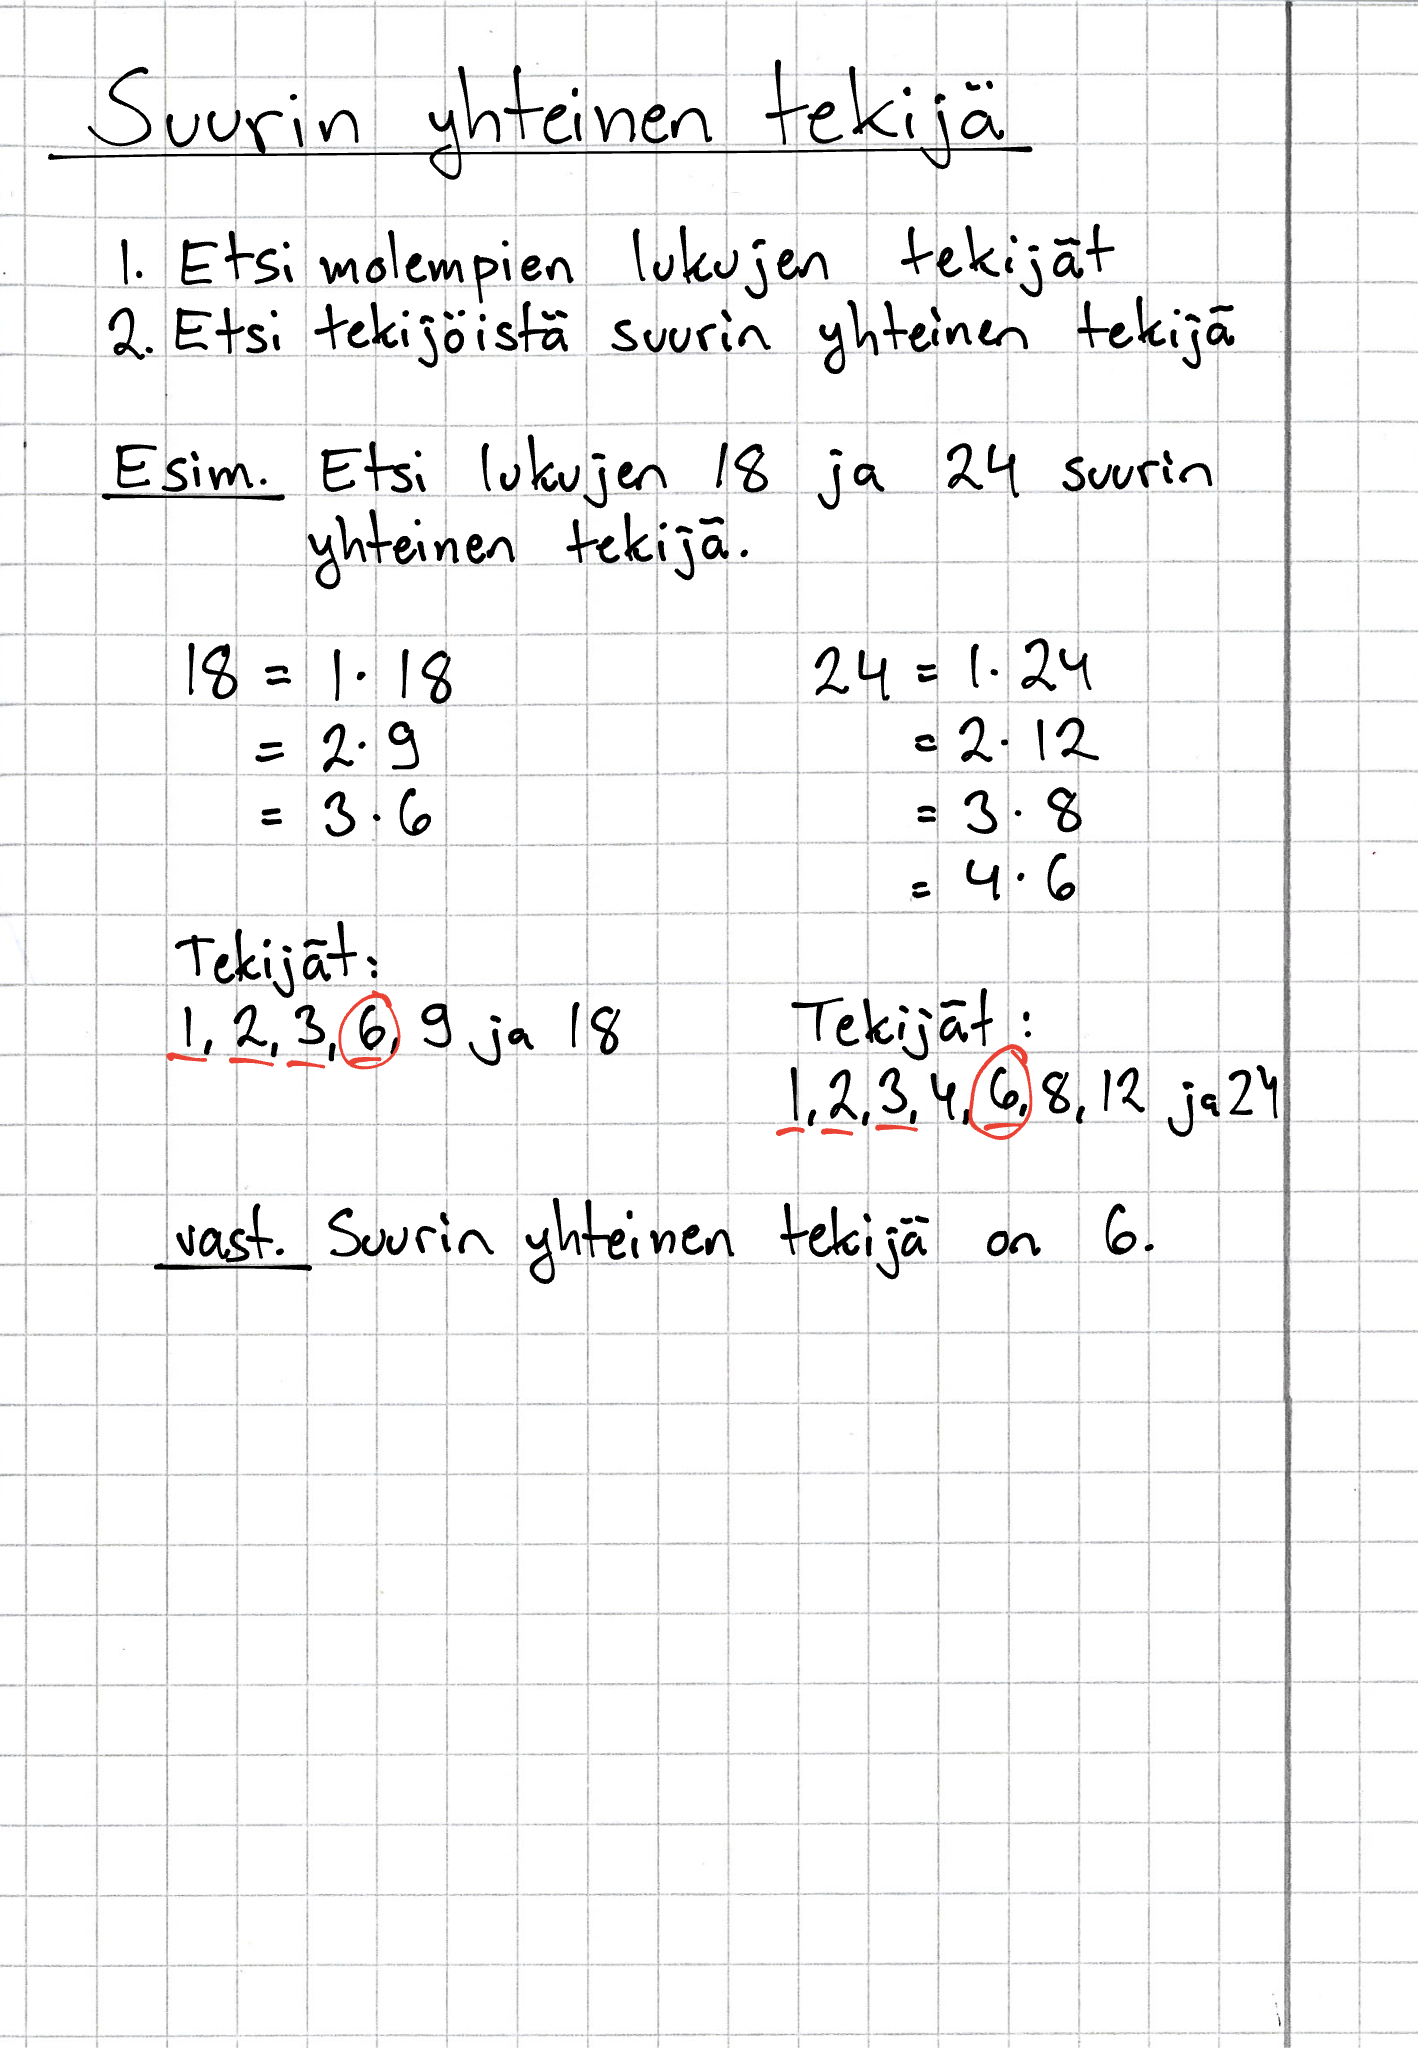 Suurin yhteinen tekijä
1. Etsi molempien lukujen tekijät
2. Etsi tekijöistä suurin yhteinen tekijä
Esim. Etsi lukujen 18 ja 24 suurin
yhteinen tekijä.
18 = 1 · 18
= 2 · 9
= 3 · 6
24 = 1 · 24
= 2 · 12
= 3 · 8
= 4 · 6
Tekijät:
1, 2, 3, 6, 9 ja 18
Tekijät:
1, 2, 3, 4, 6, 8, 12 ja 24
vast. Suurin yhteinen tekijä on 6.